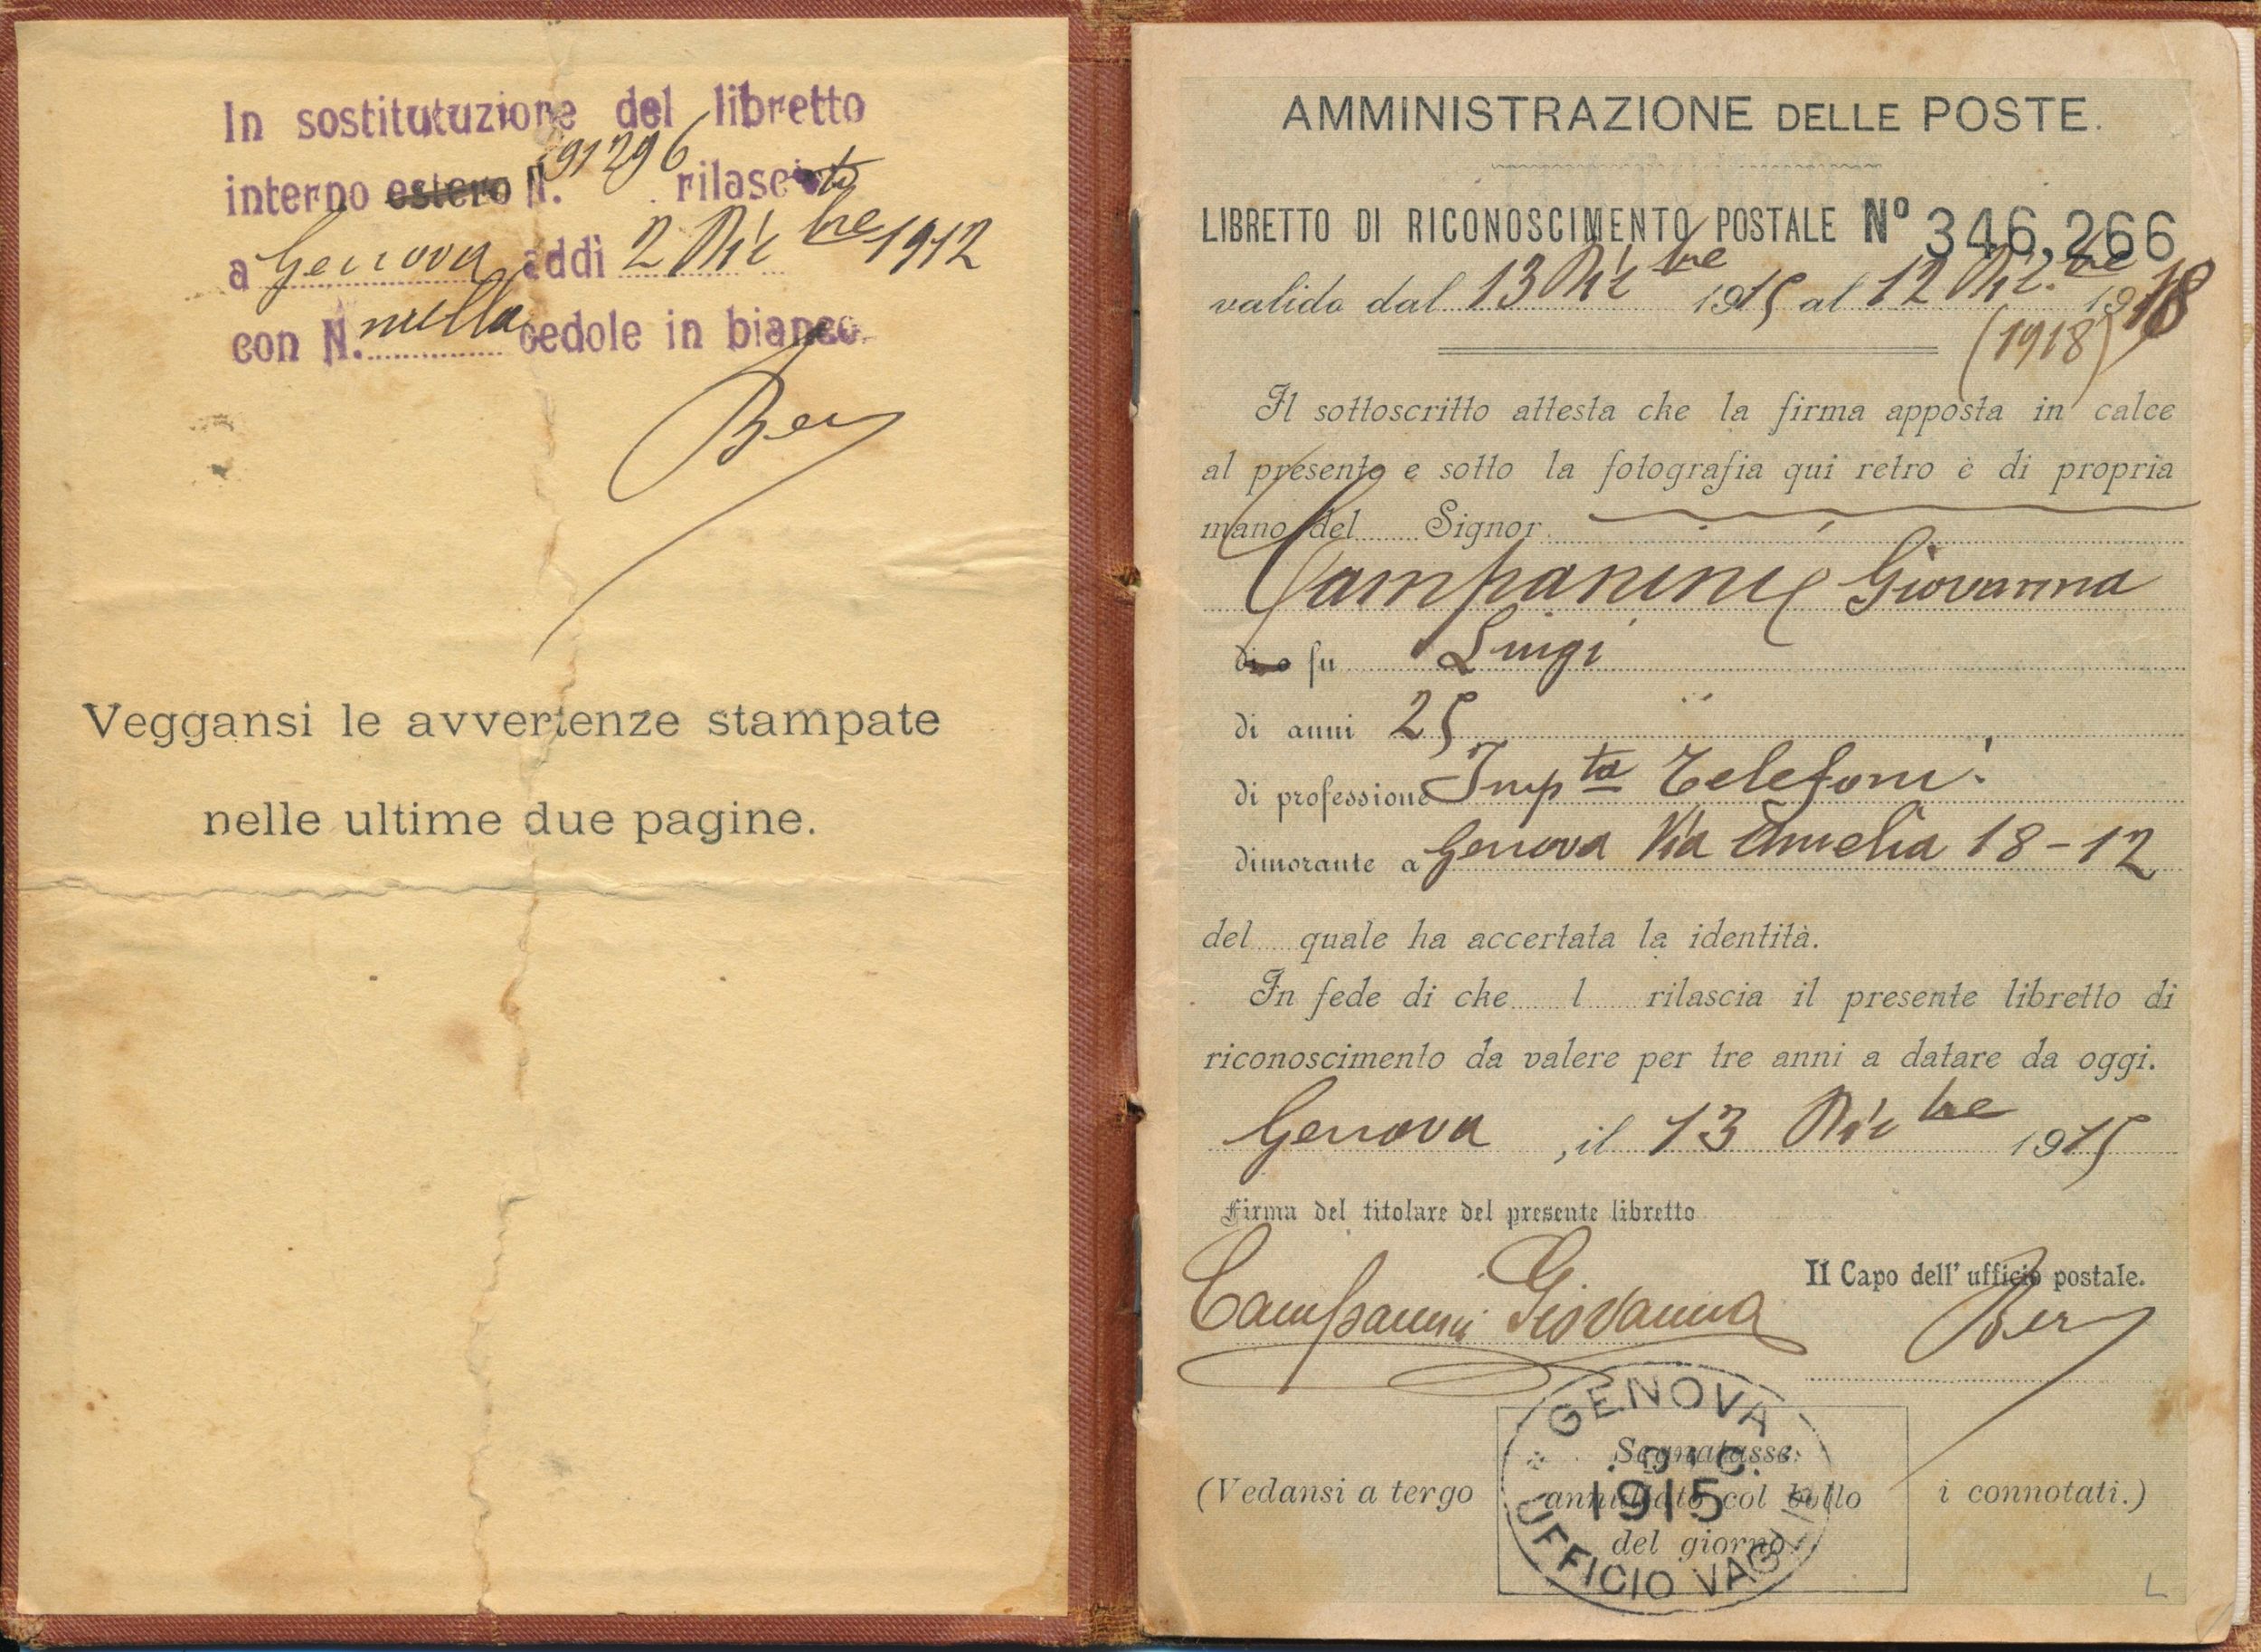 In sostitutuzione del libretto
interno estero N. 91296 rilasciato
a Genova addì 2 Dicbre 1912
con N. nulla cedole in bianco
Veggansi le avvertenze stampate
nelle ultime due pagine.
AMMINISTRAZIONE DELLE POSTE.
LIBRETTO DI RICONOSCIMENTO POSTALE Nº 346,266
valido dal 13 Dicbre 1915 al 12 Dic.bre 1918
(1918)
Il sottoscritto attesta che la firma apposta in calce
al presente e sotto la fotografia qui retro è di propria
mano del Signor
Campanini Giovanna
di o fu Luigi
di anni 25
di professione Impta Telefoni
dimorante a Genova Via Amelia 18-12
del quale ha accertata la identità.
In fede di che l rilascia il presente libretto di
riconoscimento da valere per tre anni a datare da oggi.
Genova, il 13 Dicbre 1915
Firma del titolare del presente libretto
Il Capo dell' ufficio postale.
Campanini Giovanna
GENOVA
Segnatasse
1915
(Vedansi a tergo annullato col bollo i connotati.)
del giorno
UFFICIO VAGLIA